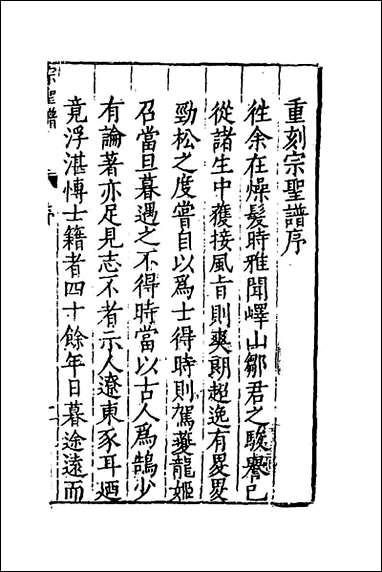 重刻宗聖譜序
徃余在燥髮時雅聞嶧山鄒君之駿譽已
從諸生中獲接風㫖則爽朗超逸有畟畟
勁松之度嘗自以爲士得時則駕夔龍姬
召當旦暮遇之不得時當以古人爲鵠少
有論著亦足見志不者示人遼東豕耳廼
竟浮湛博士籍者四十餘年日暮途遠而
宗聖譜
序